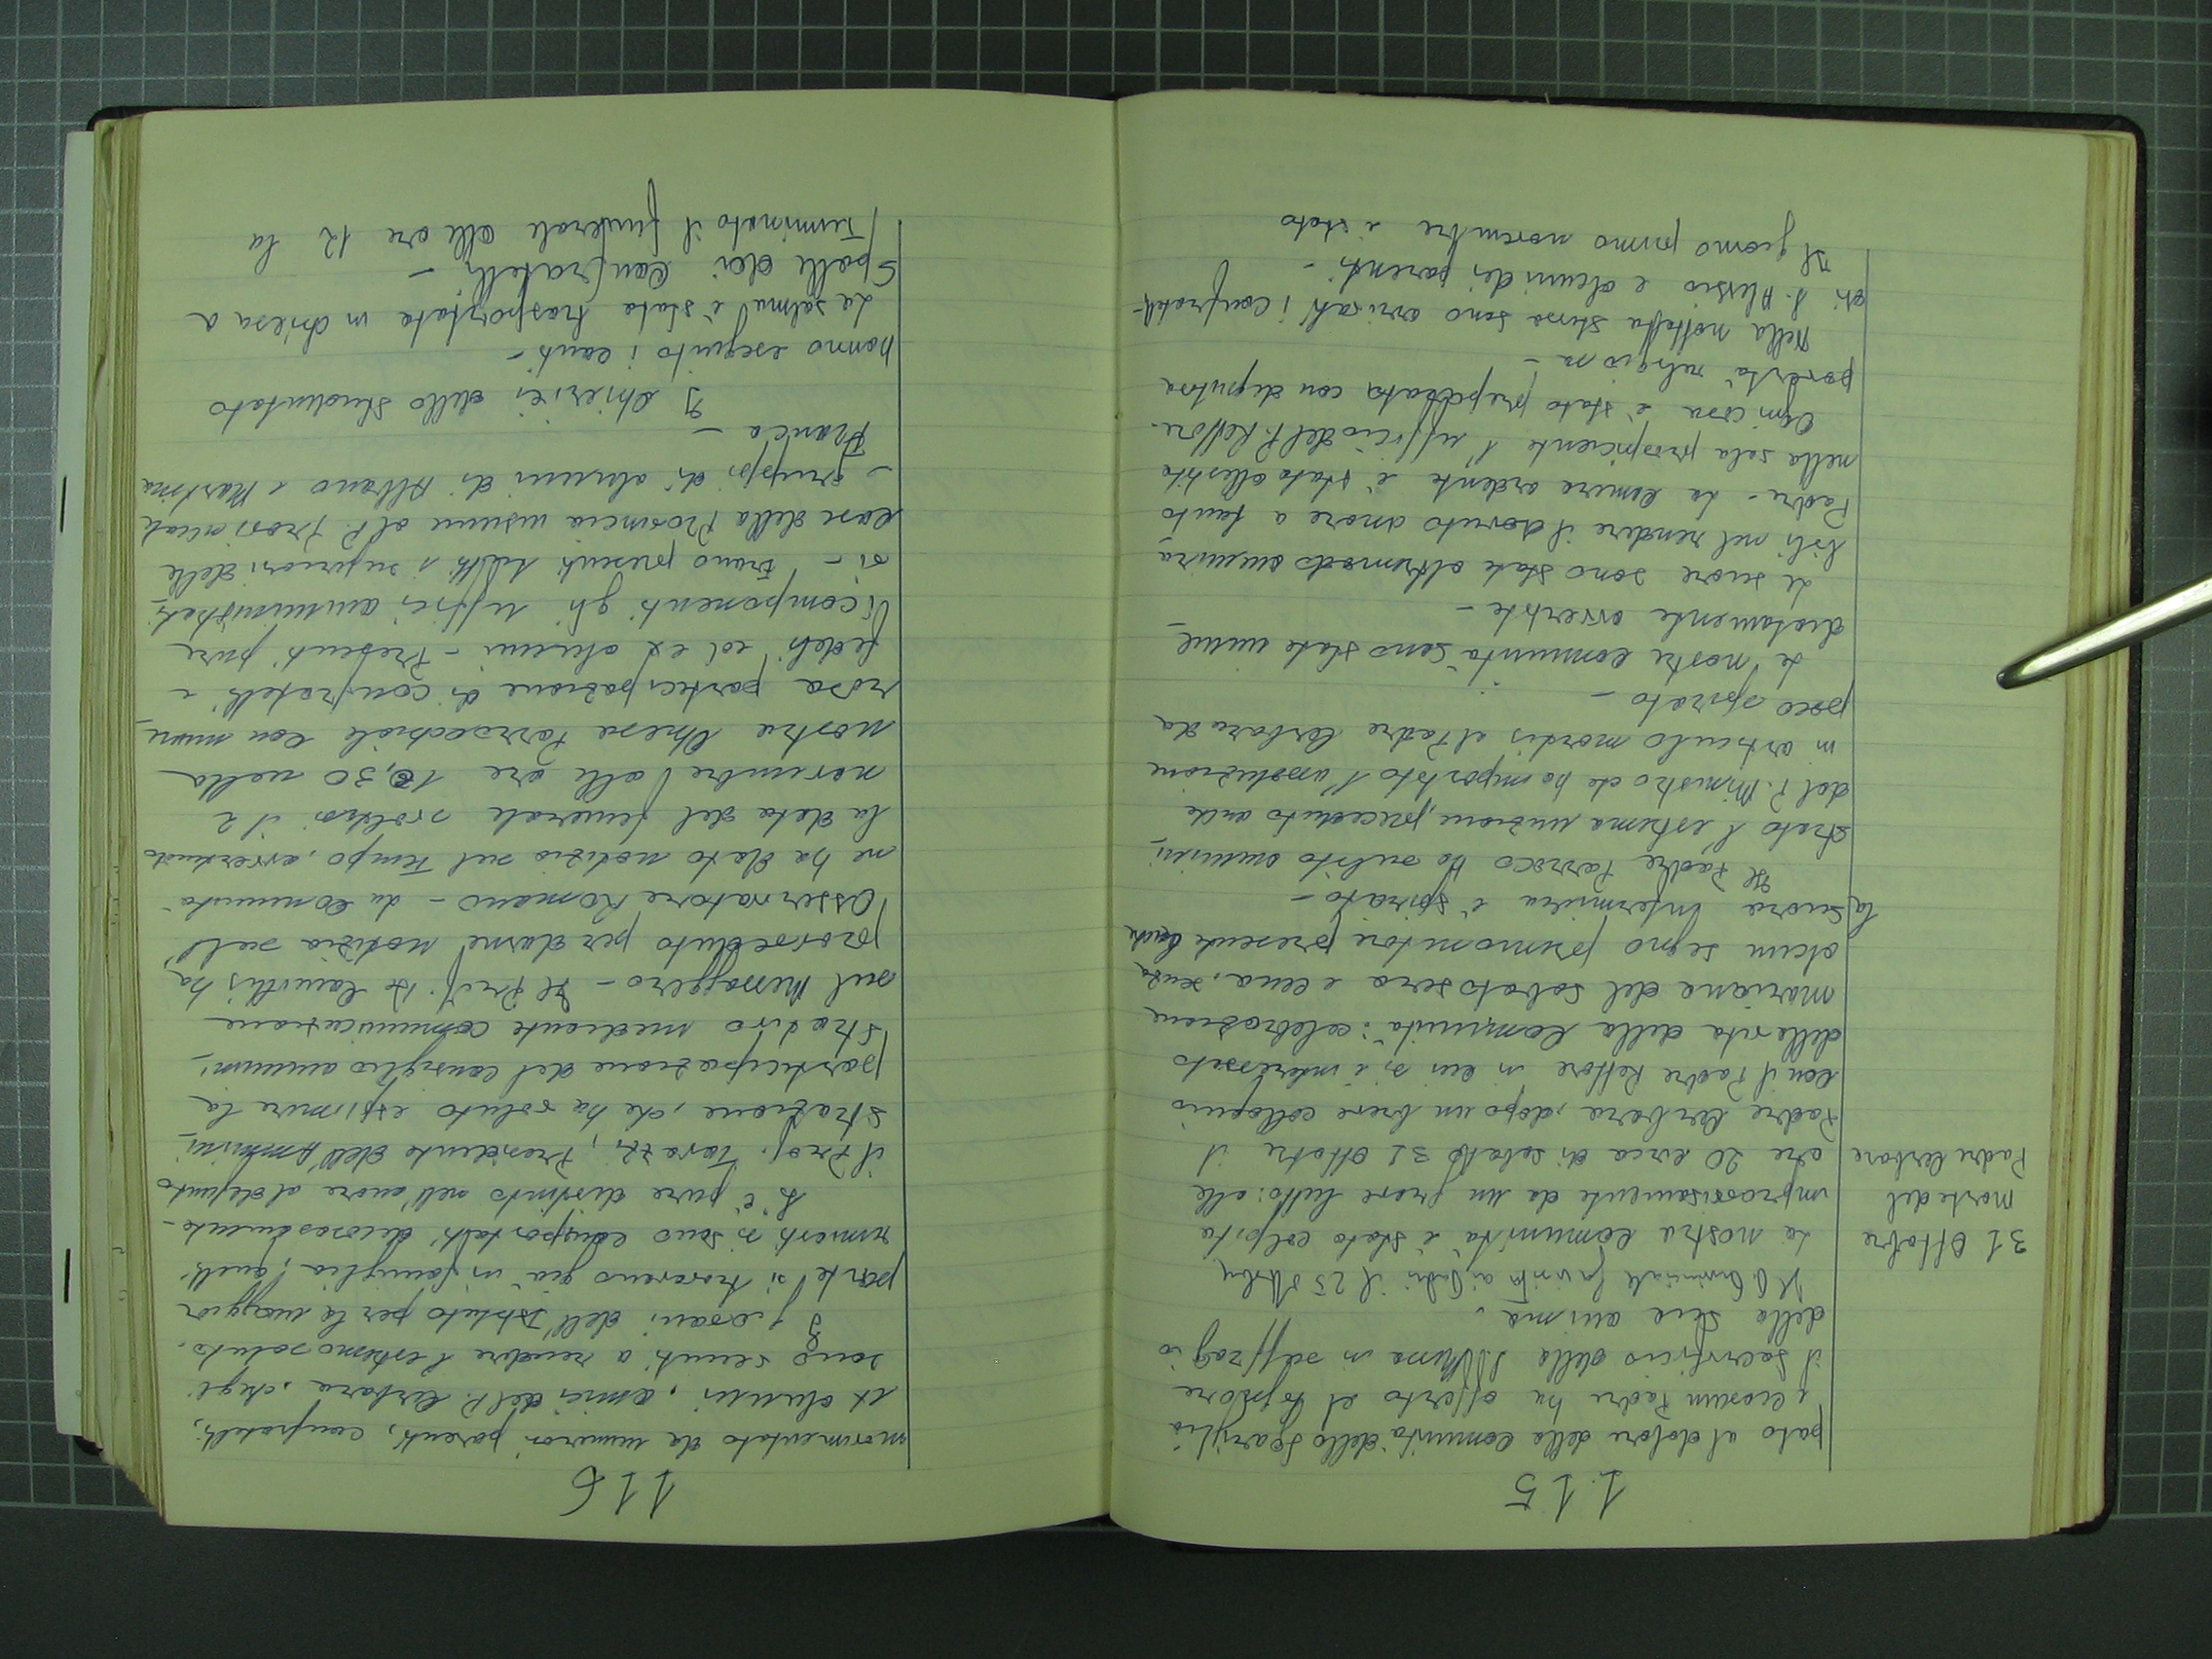 115
pato al dolore della Comunità dello Spariglio
e ciascun Padre ha offerto al Signore
il Sacrificio della S. Messa in suffragio
della sua anima.
Il P. Provinciale fa visita ai Padri il 25 Ottobre
31 Ottobre
morte del
Padre Cerbara
La nostra Comunità è stata colpita
improvvisamente da un grave lutto: alle
ore 20 circa di sabato 31 Ottobre il
Padre Cerbara, dopo un breve colloquio
con il Padre Rettore in cui si è interessato
della vita della Comunità: celebrazione
mariana del sabato sera e cena, senza
alcun segno premonitore presente anche
la Suora Infermiera è spirato -
Il Padre Parroco ha subito ammini_
strato l'estrema unzione, preceduto anche
dal P. Ministro che ha impartito l'assoluzione
in articulo mortis al Padre Cerbara da
poco spirato -
Le nostre Comunità sono state imme_
diatamente avvertite -
Le suore sono state oltremodo ammira_
bili nel rendere il dovuto onore a tanto
Padre - La Camera ardente è stata allestita
nella sala prospiciente l'ufficio del P. Rettore.
Ogni cosa è stata preparata con dignitosa
povertà religiosa -
Nella nottata stessa sono arrivati i Confratelli
di S. Alessio e alcuni dei parenti -
Il giorno primo novembre è stato
116
movimentato da numerosi parenti, confratelli,
ex alunni, amici del P. Cerbara, che gli
sono venuti a rendere l'estremo saluto.
I giovani dell'Istituto per la maggior
parte si trovavano già in famiglia; quelli
rimasti si sono comportati decorosamente -
Si è pure distinto nell'onore al defunto
il Prof. Tarazzi, Presidente dell'Ammini_
strazione, che ha voluto esprimere la
partecipazione del Consiglio ammini_
strativo mediante comunicazione
sul Messaggero - Il Prof. De Camillis ha
provveduto per darne notizia sull'
Osservatore Romano - La Comunità
ne ha dato notizia sul Tempo, avvertendo
la data del funerale svoltosi il 2
novembre alle ore 10,30 nella
nostra Chiesa Parrocchiale con nume_
rosa partecipazione di confratelli e
fedeli ed ex alunni - Presenti pure
i componenti gli uffici amministrati_
vi - Erano presenti tutti i superiori delle
Case della Provincia insieme al P. Provinciale
- gruppi di alunni di Albano e Martina
Franca -
I Chierici dello Studentato
hanno eseguito i canti -
La salma è stata trasportata in chiesa a
Spalle dei Confratelli -
Terminato il funerale alle ore 12 la